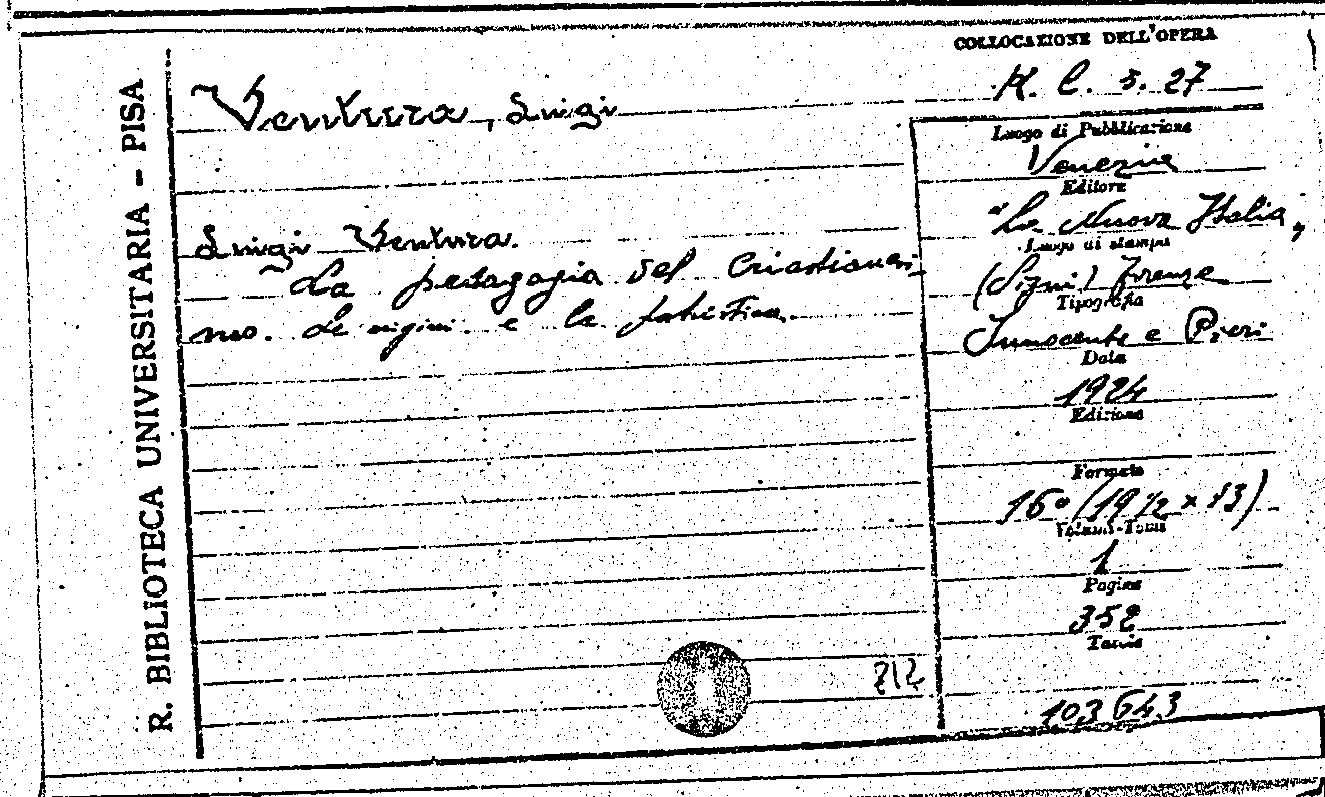 R. BIBLIOTECA UNIVERSITARIA - PISA
Ventura, Luigi
Luigi Ventura.
La pedagogia del Cristianesi
mo. Le origini e la patristica.
212
COLLOCAZIONE DELL'OPERA
H. C. 3. 27
Luogo di Pubblicazione
Venezia
Editore
"La Nuova Italia,,
Luogo di stampa
Firenze
Tipografia
Innocente e Pieri
Data
1924
Edizione
Formato
16° (19 1/2 x 13)
Volumi-Tomi
1
Pagine
352
Tavole
103643